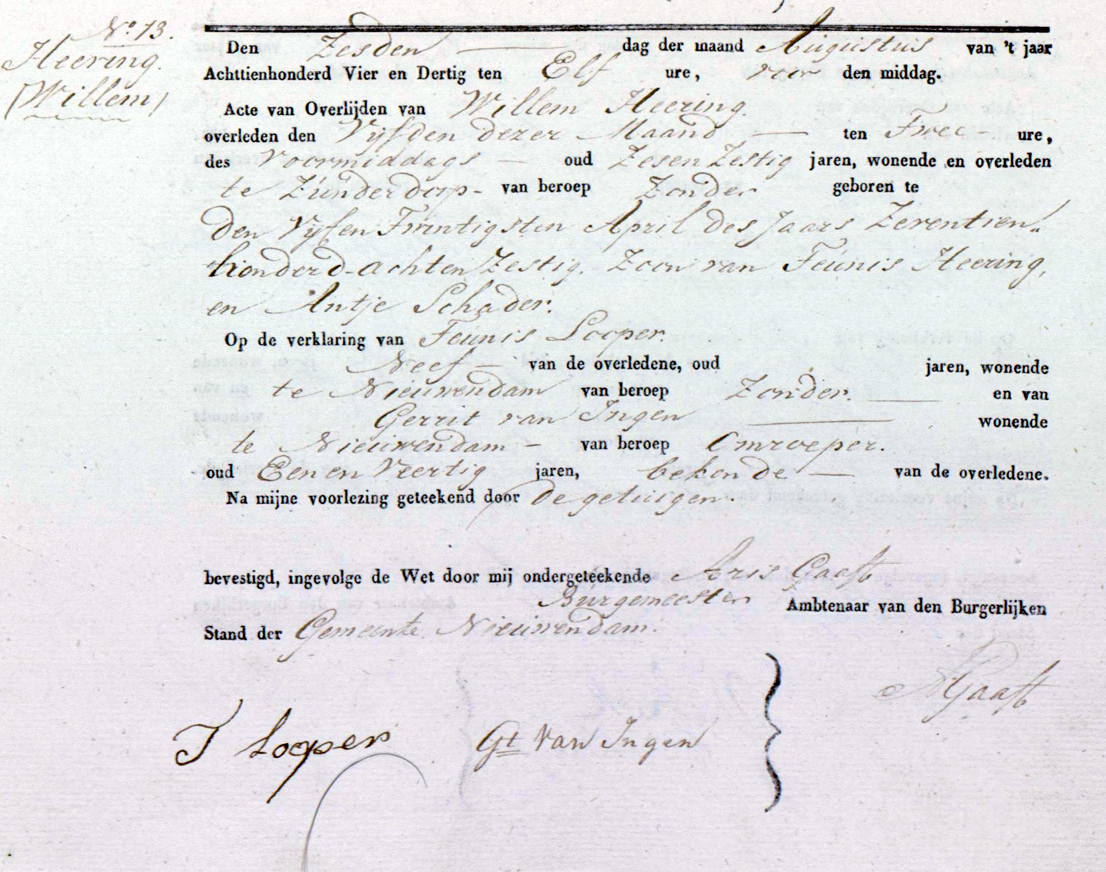 No. 13.
Heering.
(Willem)
Den Zesden dag der maand Augustus van 't jaar
Achttienhonderd Vier en Dertig ten Elf ure, voor den middag.
Acte van Overlijden van Willem Heering.
overleden den Vijfden dezer Maand ten Twee ure,
des Voormiddags oud ZesenZestig jaren, wonende en overleden
te Zunderdorp van beroep Zonder geboren te
den VijfenTwintigsten April des Jaars Zeventien
honderd achtenZestig. Zoon van Teunis Heering,
en Antje Schader.
Op de verklaring van Teunis Looper.
Neef van de overledene, oud jaren, wonende
te Nieuwendam van beroep Zonder. en van
Gerrit van Ingen wonende
te Nieuwendam van beroep Omroeper.
oud Een en Veertig jaren, bekende van de overledene.
Na mijne voorlezing geteekend door de getuigen
bevestigd, ingevolge de Wet door mij ondergeteekende Aris Gaaft
Burgemeester Ambtenaar van den Burgerlijken
Stand der Gemeente Nieuwendam.
AGaaft
T Looper Gt Van Ingen